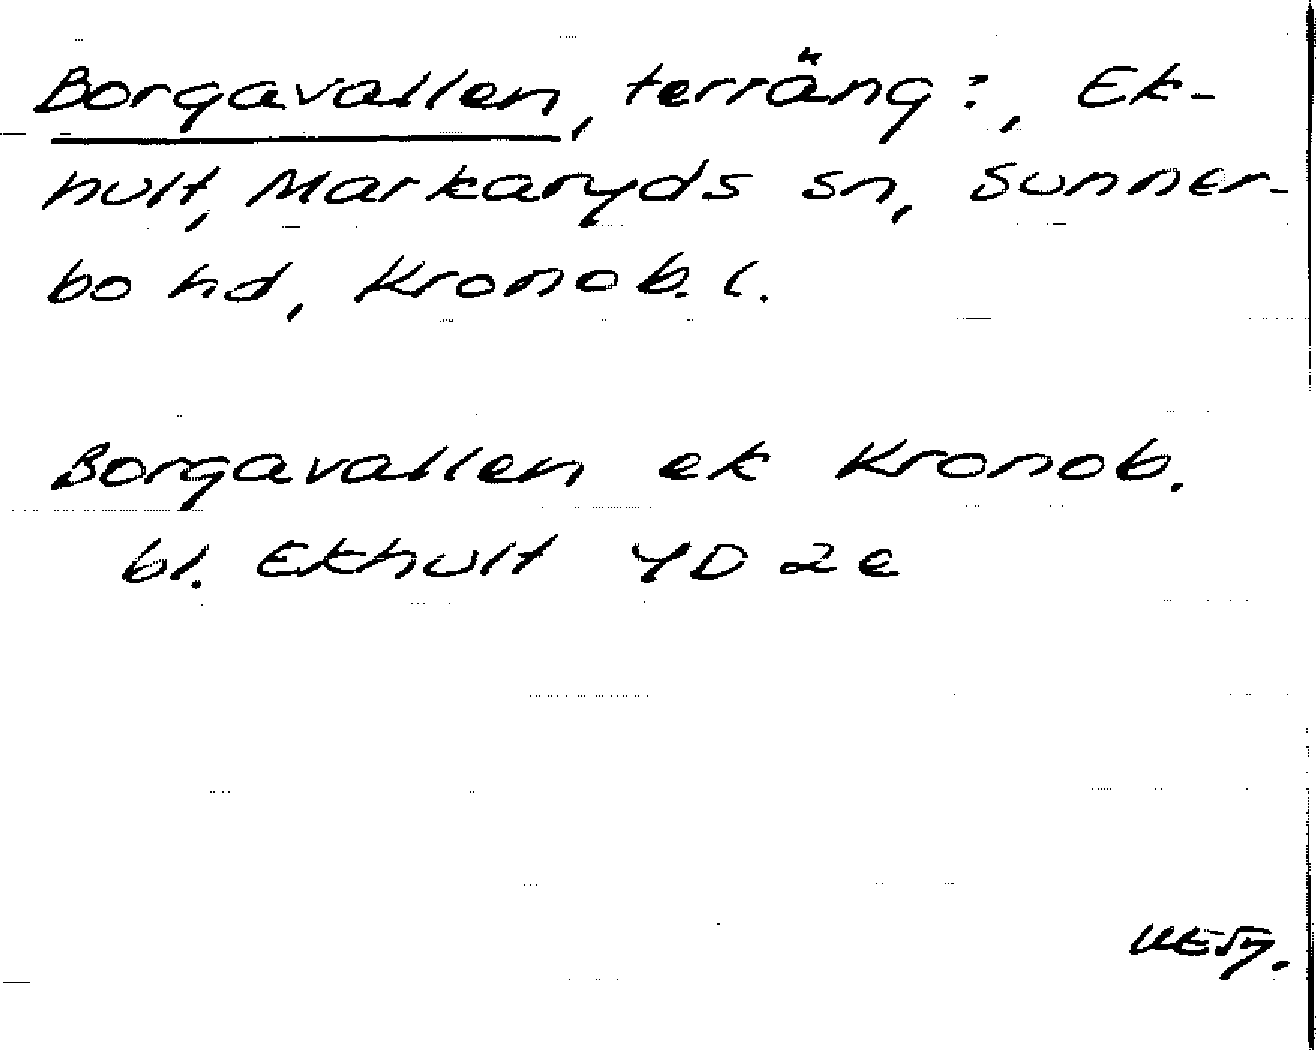 Borgavallen, terräng?, Ek-
hult, Markaryds sn, Sunner-
bo hd, Kronob. l.
Borgavallen ek Kronob.
bl. Ekhult 4D 2e